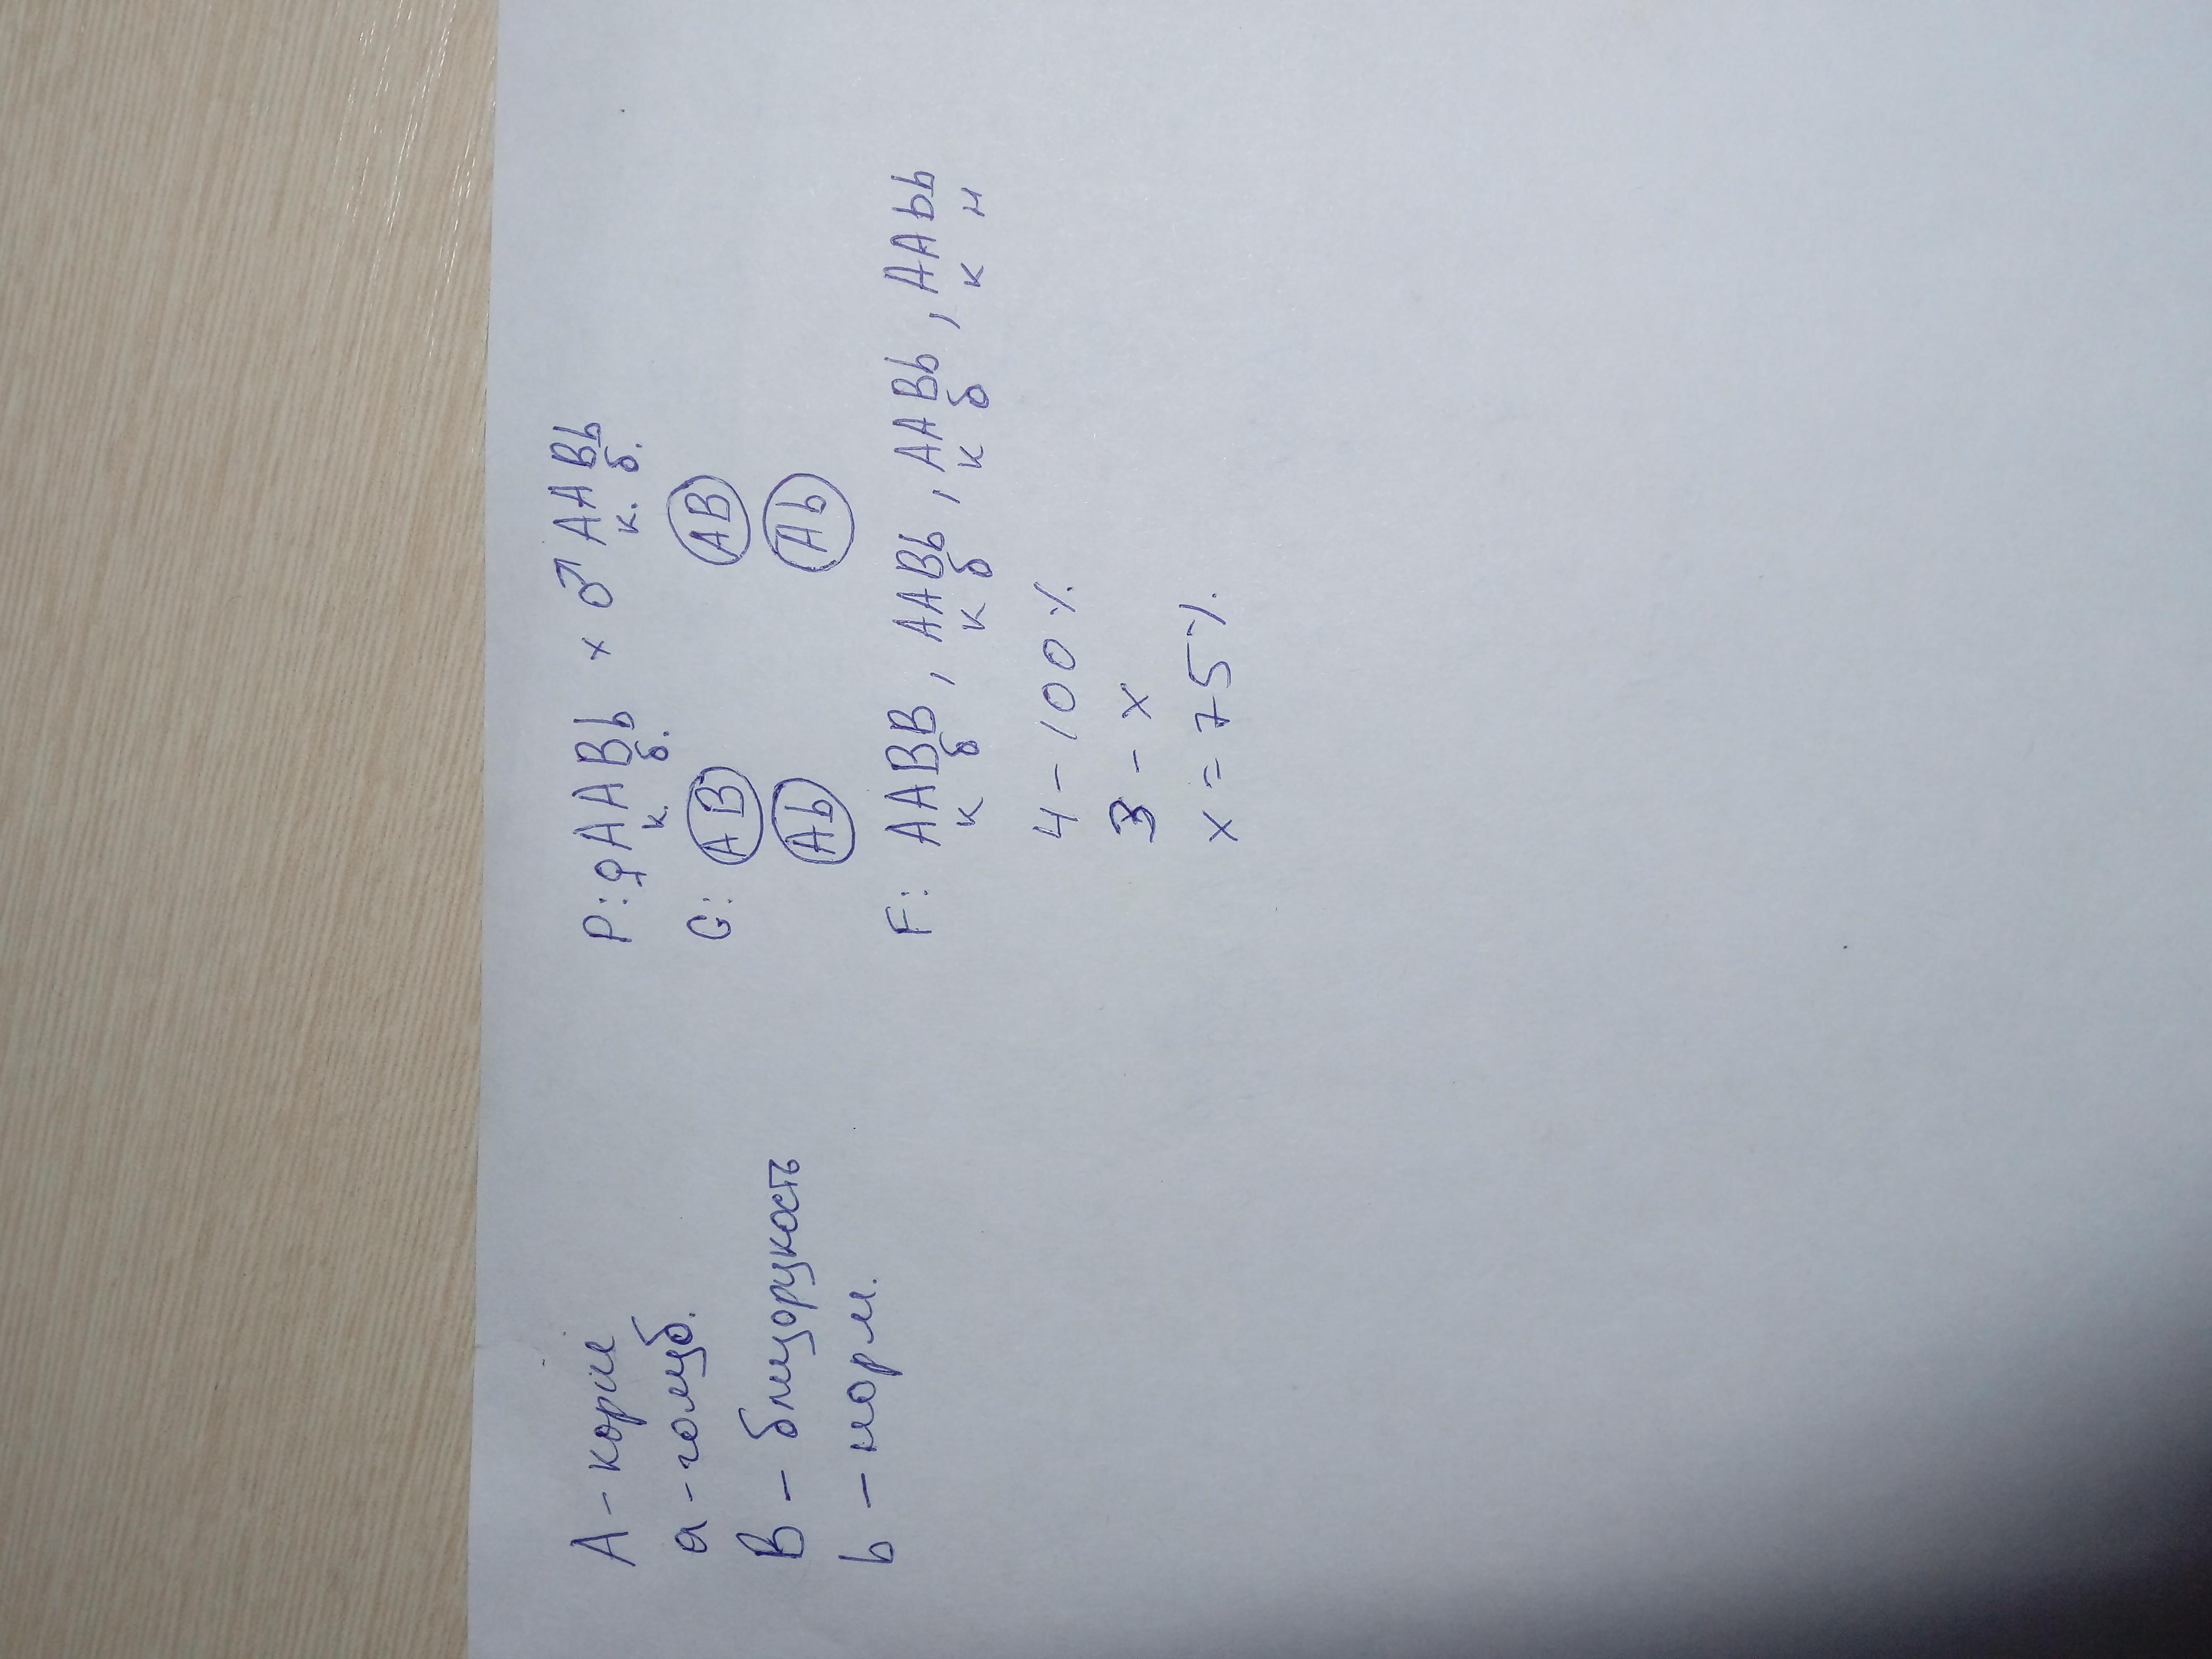 A - карие
a - голуб.
B - близорукость
b - норм.
P: ♀ AABb x ♂ AABb
к. б. к. б.
G: AB AB
Ab Ab
F: AABB, AABb, AABb, AAbb
к б к б к б к н
4 - 100%
3 - x
x = 75%.